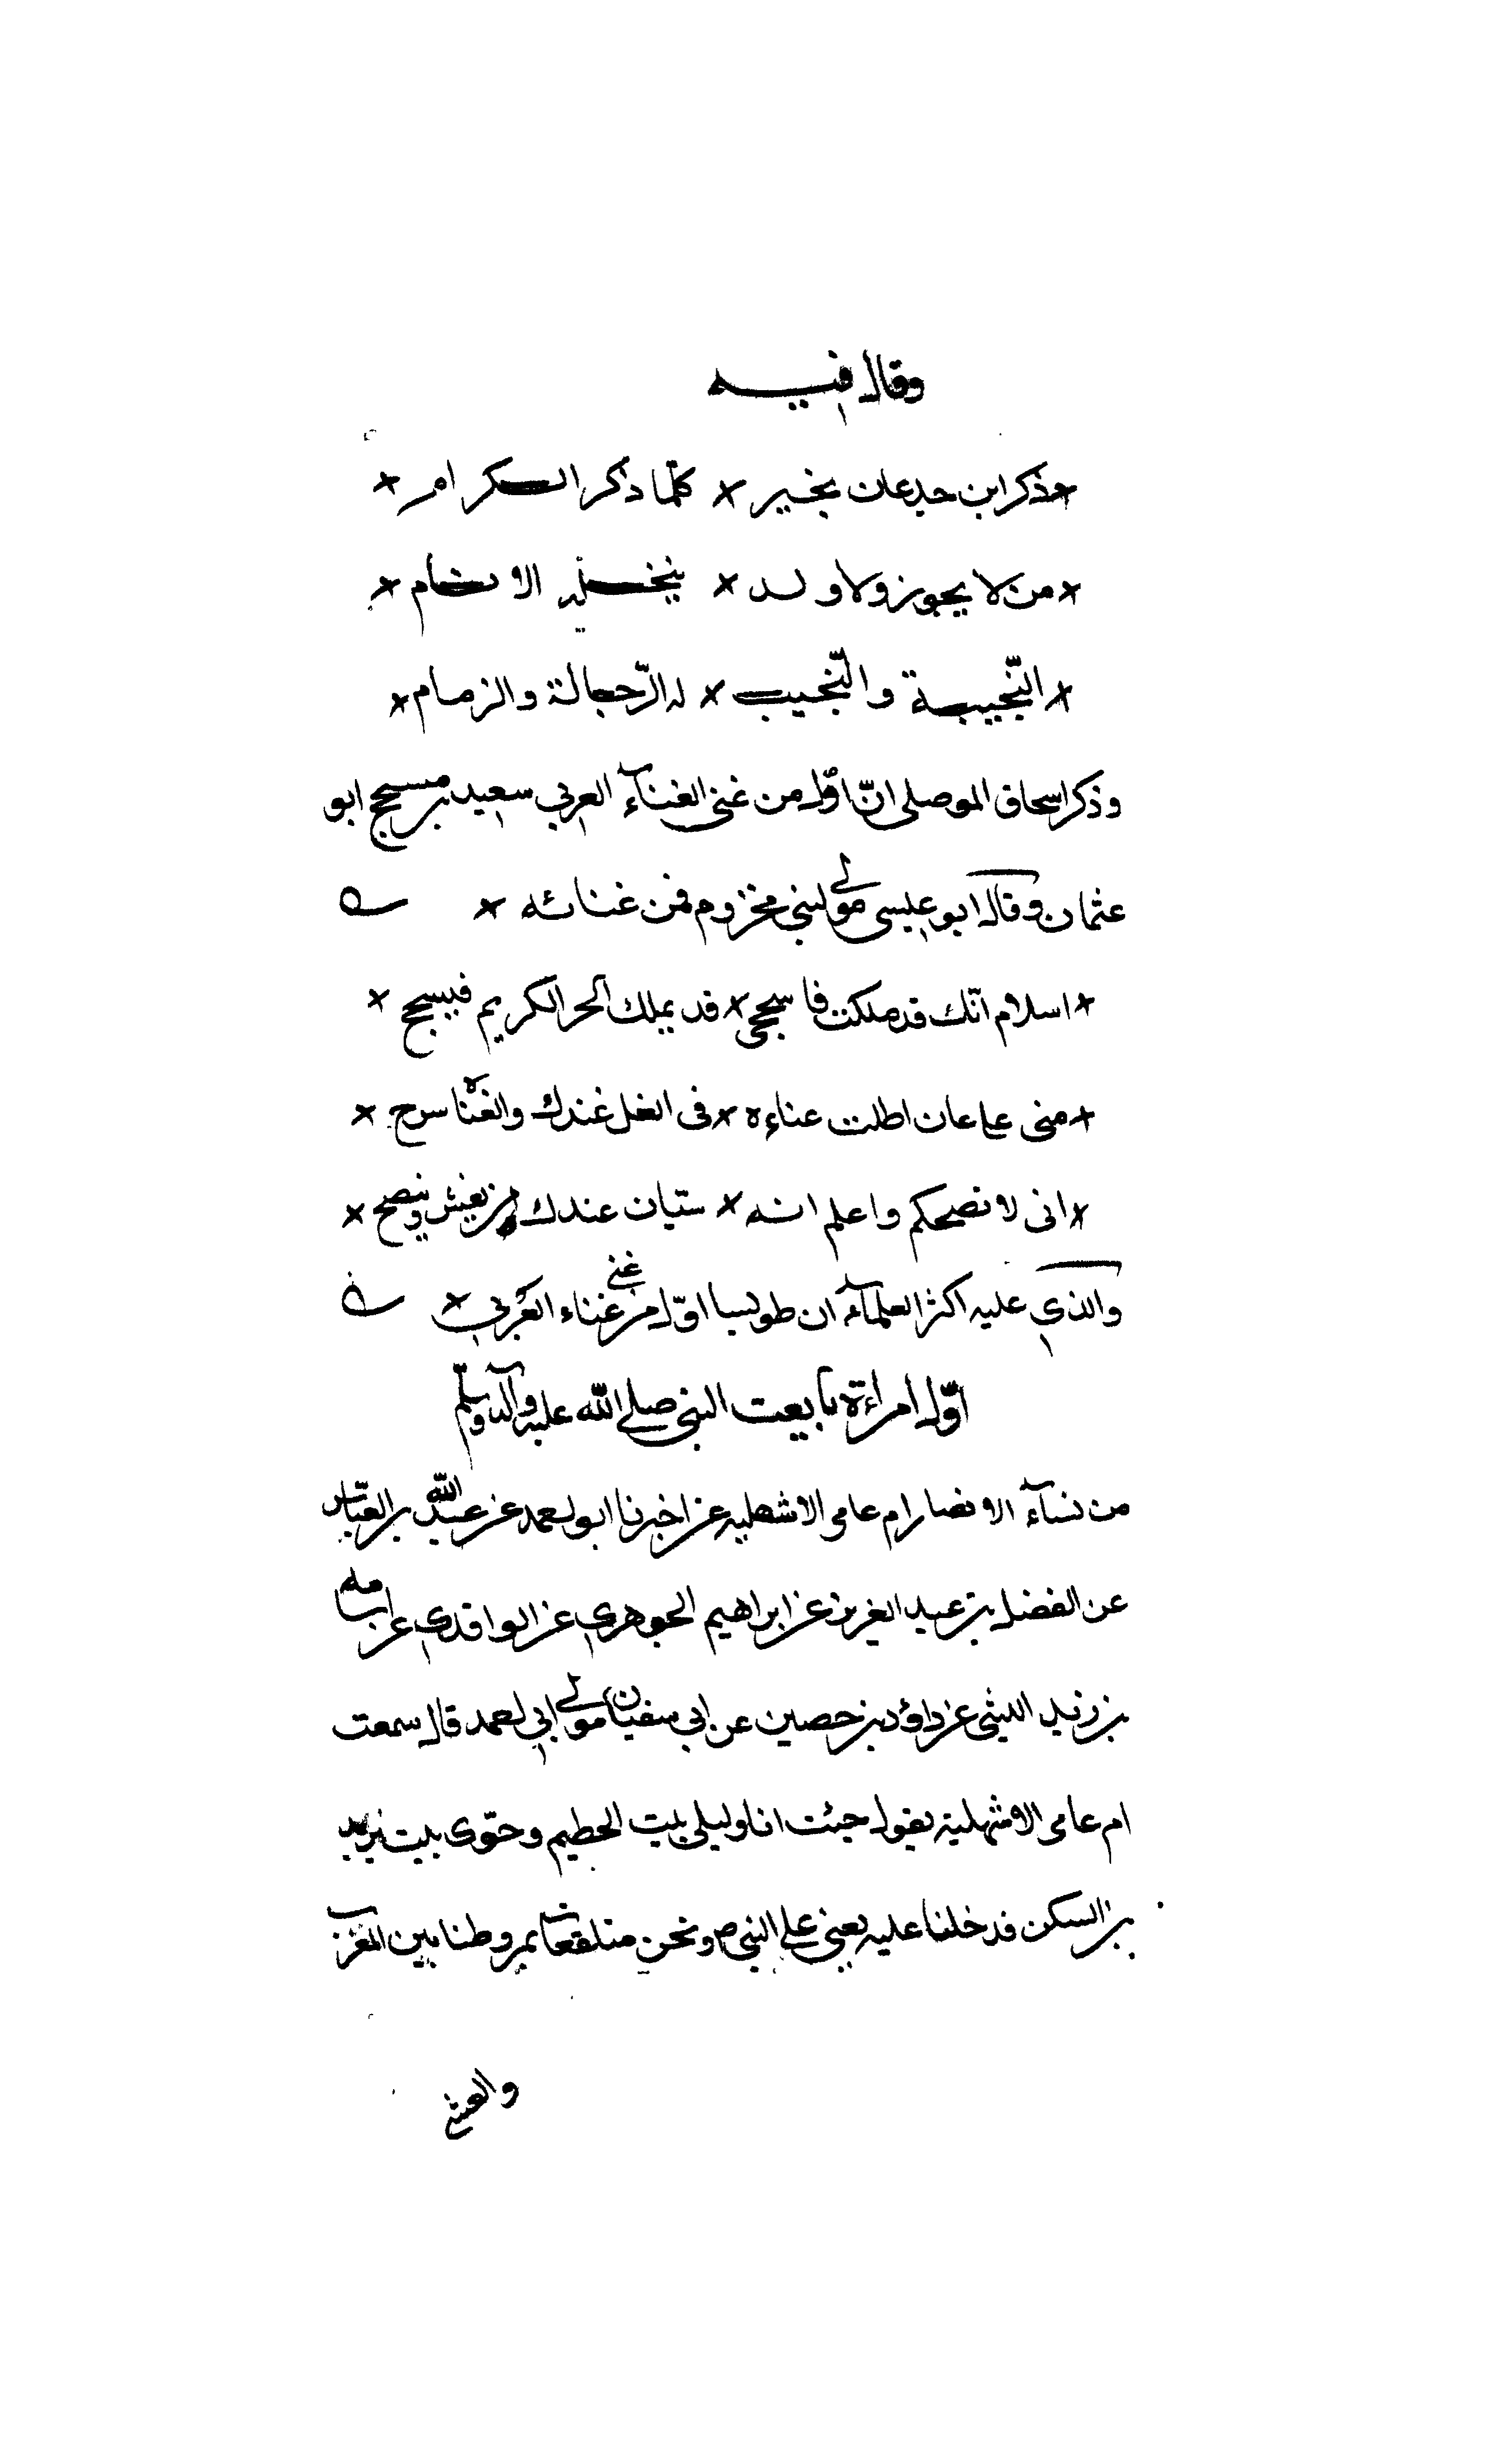 وقال فيه
× ذكر ابن جدعان بخير × كلّما ذكر الكرام ×
× من لا يجوز ولا ولد × ينخله الانام ×
× النّجيبة والنّجيب × له الرّحالة والزمام ×
وذكر اسحاق الموصلي انّ اوّل من غنى الغنآء العربي سعيد بن مسجح ابو
عثمان وقال ابو عيسى مولى لبني مخزوم فمن غنائه ×
× اسلام انّك قد ملكت فاسجحي × قد يملك الحر الكريم فيسجح ×
× مني على عان اطلت عناءه × في الغل عندك والعناه سرح ×
× اني لانصحكم واعلم انه × ستيان عندك من يغش وينصح ×
والذي عليه اكثر العلمآء ان طويسا اوّل من غنى غناء العربي ×
اوّل امراءة بايعت النبي صلى الله عليه وآله وسلّم
من نسآء الانصار ام عامر الاشهليه عن اخبرنا ابو احمد عن عبد الله بن العبّاس
عن الفضل بن عبد العزيز عن ابراهيم الجوهري عن الواقدي عن اسامه
بن زيد الليثي عن داؤد بن حصين عن ابي سفيان مولى ابي احمد قال سمعت
ام عامر الاشهلية يقول جئت انا وليلى بيت الحطيم وحوّى بيت يزيد
بن السكن فدخلنا عليه يعني على النبي ص ونحن متلفعات بمروطنا بين المغرب
والعشي